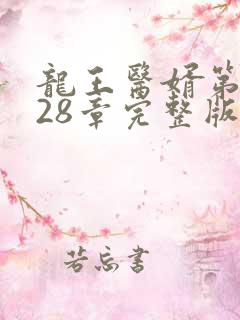 龍王醫婿第
28章完整版
若忘書